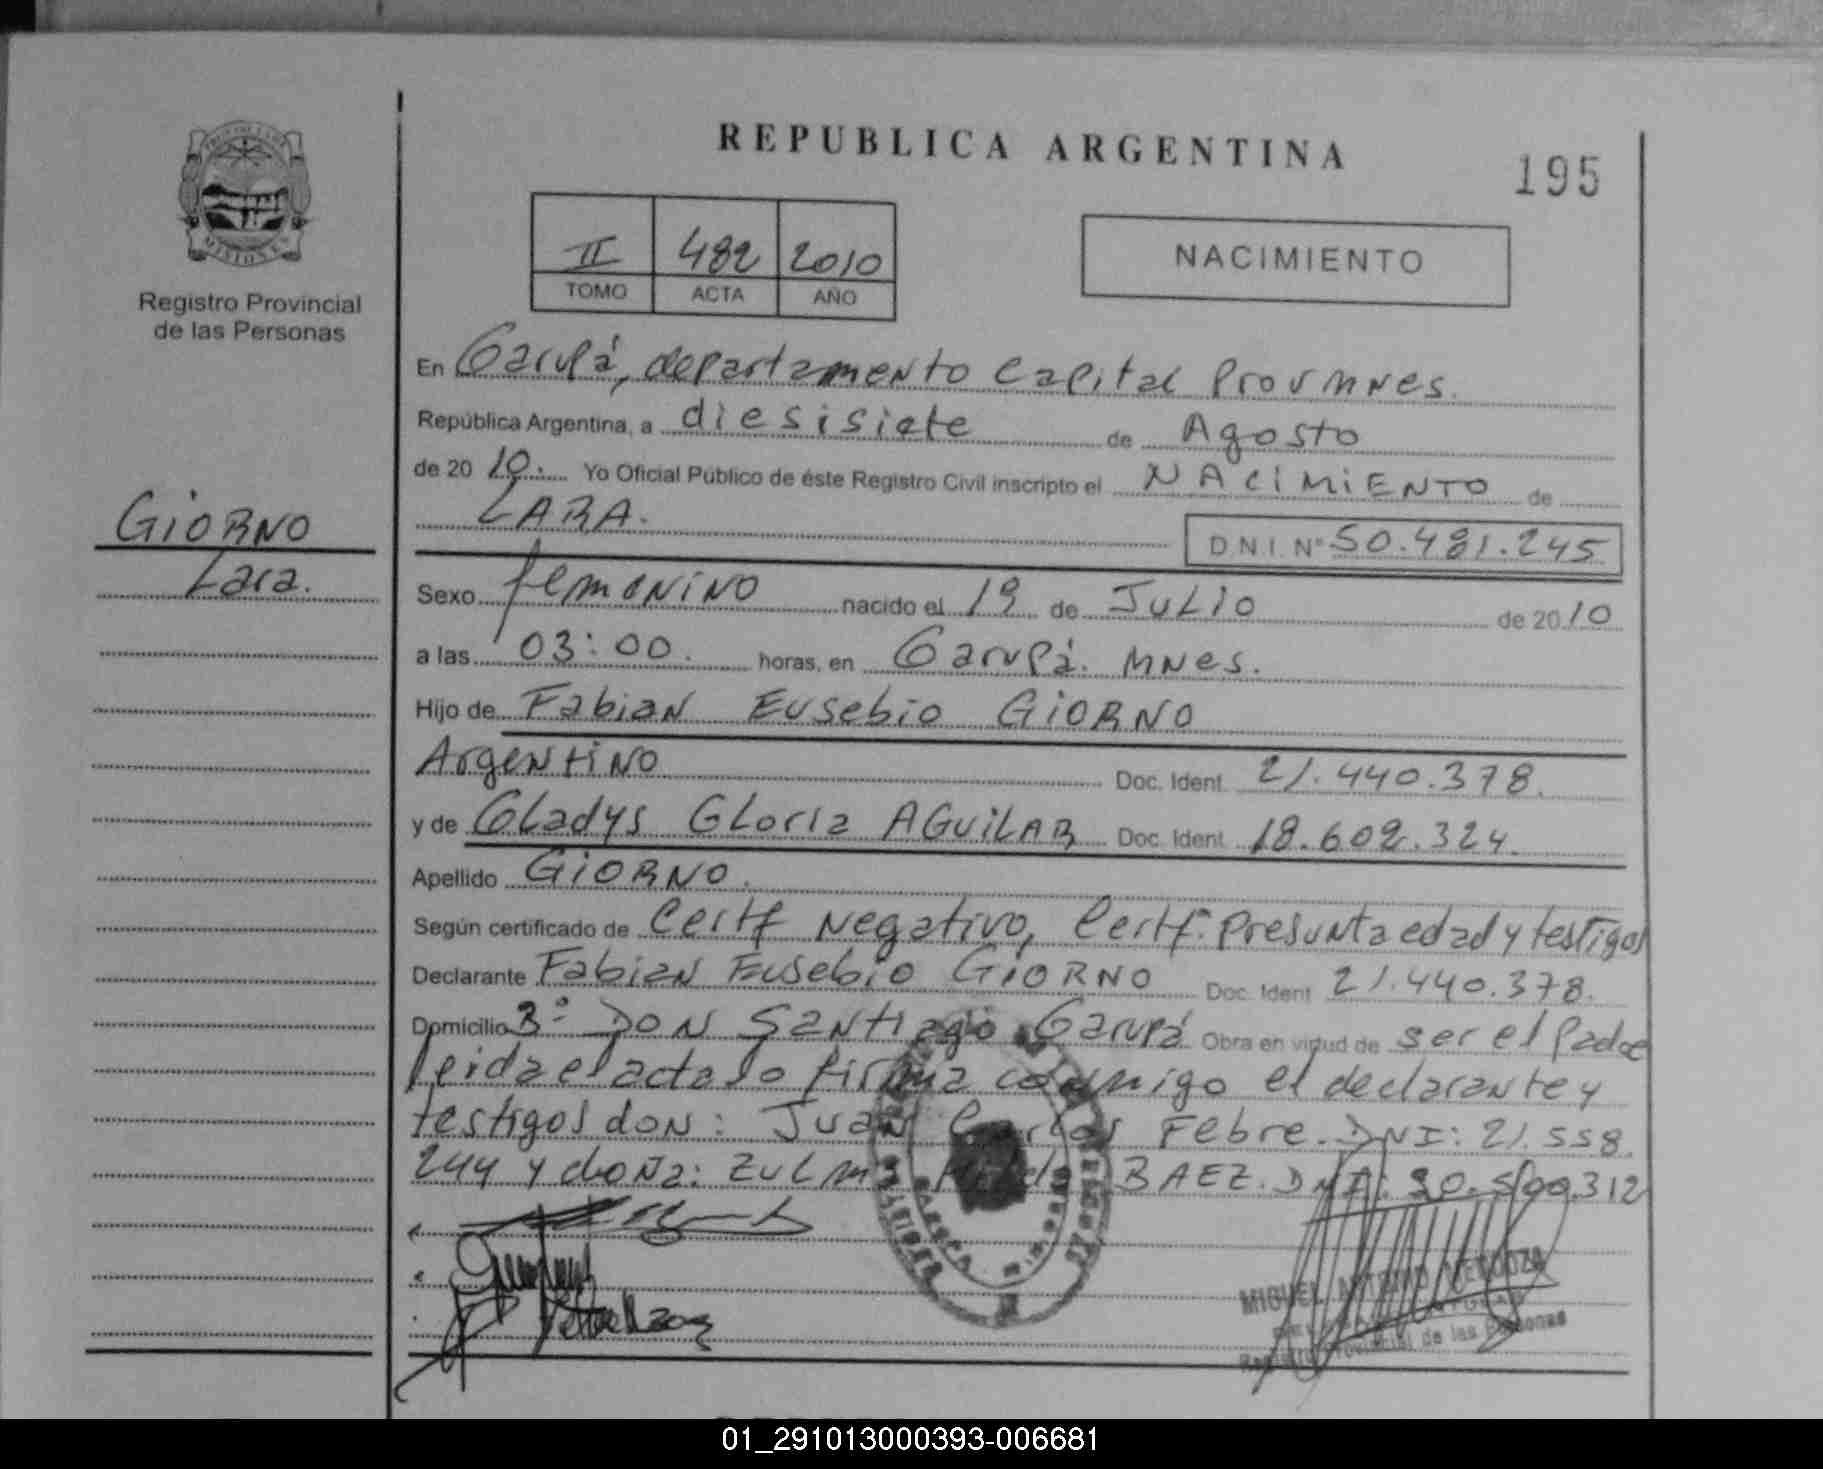 REPUBLICA ARGENTINA
195
II 482 2010
TOMO ACTA AÑO
NACIMIENTO
MISIONES
Registro Provincial
de las Personas
GIORNO
Lara.
En Garupá, departamento Capital Prov Mnes.
República Argentina, a diesisiete de Agosto
de 20 10. Yo Oficial Público de éste Registro Civil inscripto el NACIMIENTO de
LARA.
D.N.I. Nº 50.481.245
Sexo femenino nacido el 19 de Julio de 20 10
a las 03:00. horas, en Garupá. Mnes.
Hijo de Fabian Eusebio GIORNO
Argentino Doc. Ident. 21.440.378.
y de Gladys Gloria AGUILAR Doc. Ident. 18.602.324.
Apellido GIORNO.
Según certificado de Certf Negativo, Certf. Presunta edad y testigos
Declarante Fabian Eusebio GIORNO Doc. Ident 21.440.378.
Domicilio Bº Don Santiago Garupá Obra en virtud de ser el Padre
leida el acta lo firma conmigo el declarante y
testigos don: Juan Carlos Febre. DNI: 21.558.
244 y doña: Zulma BAEZ. DNI: 30.500.312
MIGUEL ANTONIO MENDOZA
Registro Provincial de las Personas
01_291013000393-006681